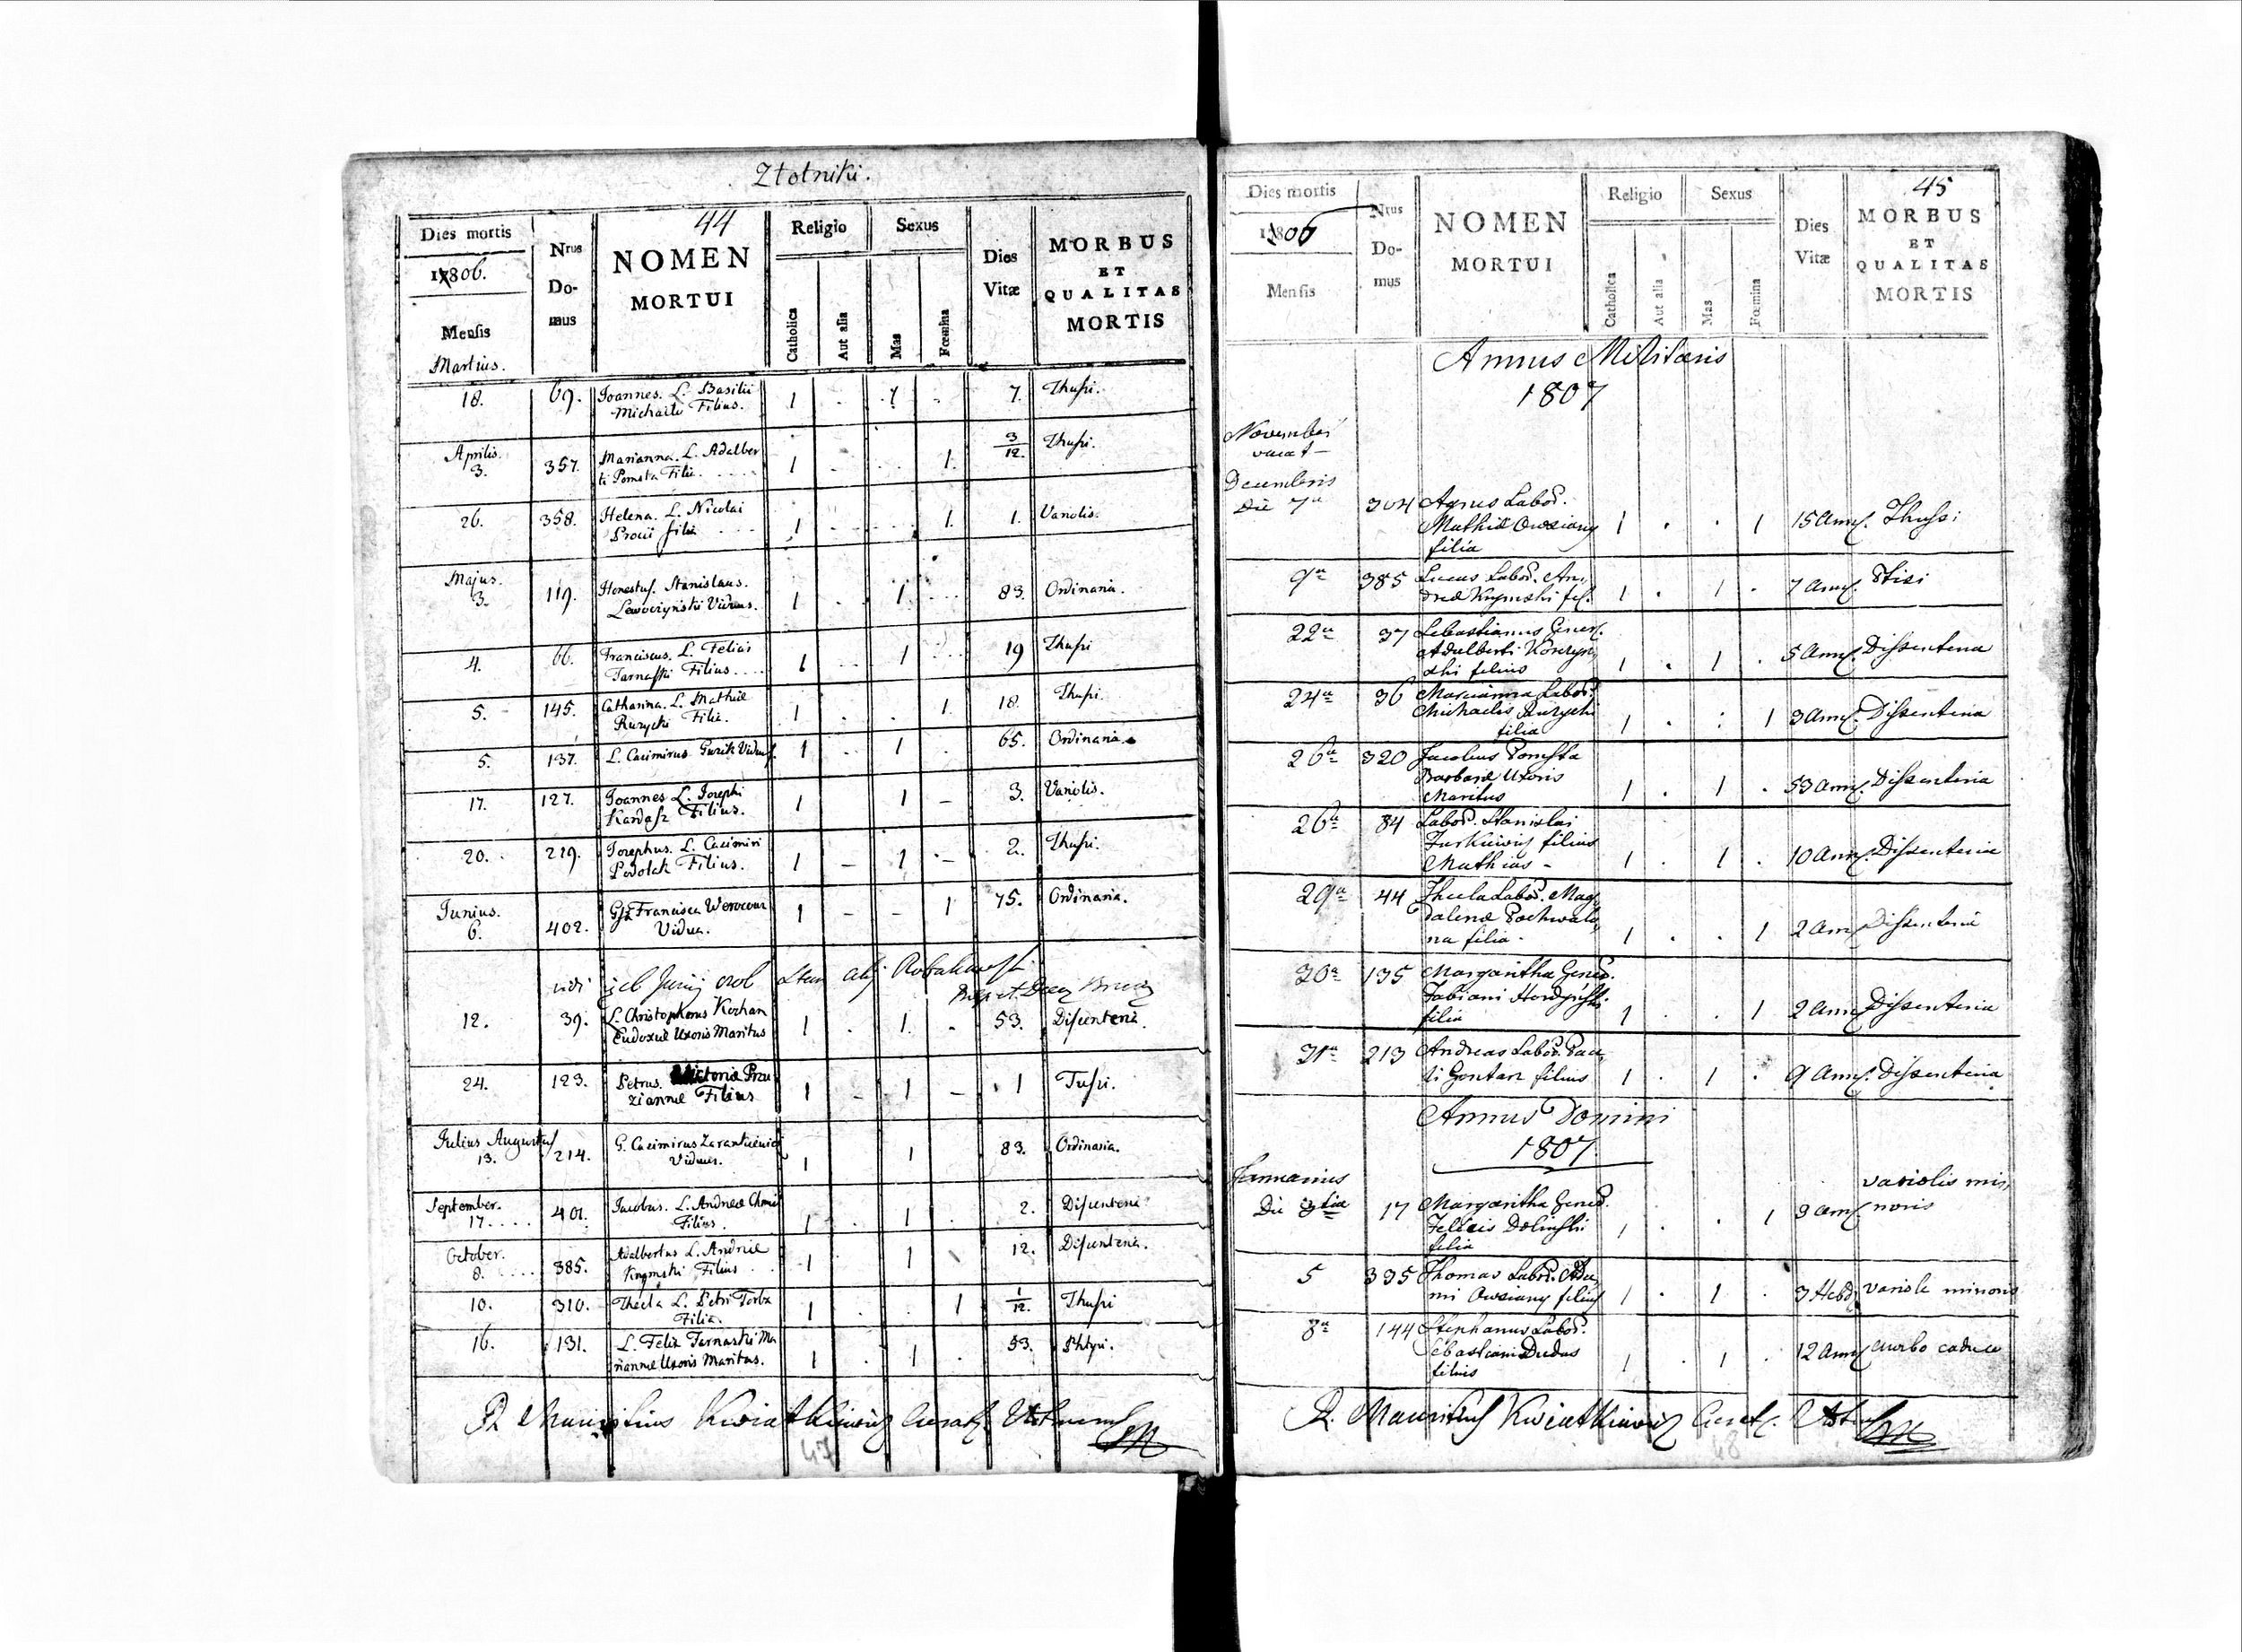 Złotniki.
44
Dies mortis
1806.
Mensis
Martius.
Nrus Do-mus
NOMEN
MORTUI
Religio
Catholica
Aut alia
Sexus
Mas
Fœmina
Dies
Vitæ
MORBUS
ET
QUALITAS
MORTIS
18. 69. Joannes. L. Basilii 1 . 1 . 7. Thussi.
Michailu Filius.
Aprilis.
3. 357. Marianna. L. Adalber 1 . . 1. 3/12. Thussi.
ti Pomsta Filia.
26. 358. Helena. L. Nicolai 1 . . 1. 1. Variolis.
filia
Majus.
3. 119. Honestus. Stanislaus. 1 . 1 . 83. Ordinaria.
Viduus.
4. 66. Franciscus. L. Felicis 1 . 1 . 19 Thussi
Tarnaski Filius.
5. 145. Catharina. L. Mathiæ 1 . . 1. 18. Thussi.
Ruzycki Filia.
5. 137. L. Casimirus Guzik Viduus. 1 . 1 . 65. Ordinaria.
17. 127. Joannes L. Josephi 1 1 – 3. Variolis.
Kardasz Filius.
20. 219. Josephus. L. Casimiri 1 – 1 – 2. Thussi.
Podolak Filius.
Junius.
6. 402. Francisca 1 – – 1 75. Ordinaria.
Vidua.
12. 39. L. Christophorus Kochan 1 . 1. . 53. Disenteria.
Eudoxiæ Uxoris Maritus
24. 123. Petrus. Victoriæ 1 – 1 – 1 Tussi.
Filius
Julius Augustus
13. 214. G. Casimirus Zarankiewicz 1 1 83. Ordinaria.
Viduus.
September.
17. 401. Jacobus. L. Andreæ 1 . 1 . 2. Disenteria
Filius.
October.
8. 385. Adalbertus L. Andreæ 1 1 12. Disenteria.
Filius
10. 310. Thecla L. Petri Torba 1 . . 1 1/12. Thussi
Filia.
16. 131. L. Felix Tarnaski Ma 1 . 1 . 53. Phtysi.
riannæ Uxoris Maritus.
Mauritius Kwiatkiewicz
47
45
Dies mortis
1806
Mensis
Nrus
Do-
mus
NOMEN
MORTUI
Religio
Catholica
Aut alia
Sexus
Mas
Fœmina
Dies
Vitæ
MORBUS
ET
QUALITAS
MORTIS
Annus Militaris
1807
November
vacat –
Decembris
Die 7a 304 Agnes Labor. 1 . . 1 15 Ann. Thussi
Mathiæ Owsiany
filia
9a 385 Lucas Labor. An- 1 . 1 . 7 Ann. Ptisi
dreæ fil.
22a 37 Sebastianus Gener. 1 . 1 . 5 Ann. Dissenteria
Adalberti
filius
24a 36 Marianna Labor. 1 . . 1 3 Ann. Dissenteria
Michaelis Ruzycki
filia
26a 320 Jacobus Pomsta 1 . 1 . 53 Ann. Dissenteria
Barbaræ Uxoris
Maritus
26a 84 Labor. Stanislai 1 . 1 . 10 Ann. Dissenteria
filius
Mathias –
29a 44 Thecla Labor. Mag 1 . . 1 2 Ann. Dissenteria
dalenæ
na filia
30a 135 Margaritha Gener. 1 . . 1 2 Ann. Dissenteria
Fabiani
filia
31a 213 Andreas Labor. 1 . 1 . 9 Ann. Dissenteria
filius
Annus Domini
1807
Januarius
Die 3tia 17 Margaritha Gener. 1 . . 1 3 Ann. variolis mi-
noris
Felicis Dolinski
filia
5 335 Thomas Labor. Ada- 1 . 1 . 3 Hebd. variole minoris
mi Owsiany filius
8a 144 Stephanus Labor. 1 . 1 . 12 Ann. morbo caduco
Sebastiani Dudas
filius
Mauritius Kwiatkiewicz
48